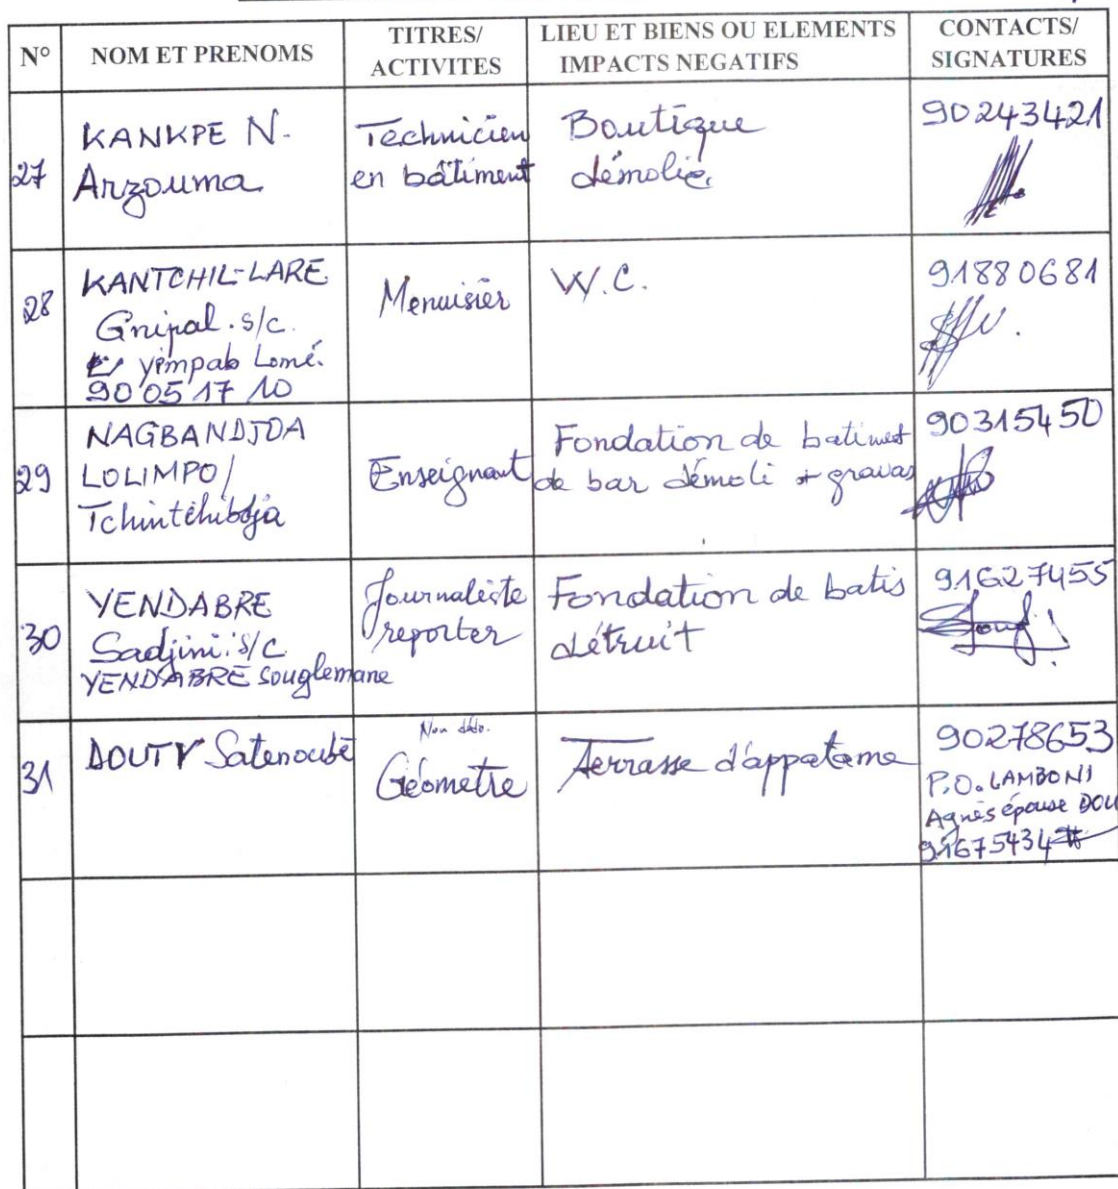 N° NOM ET PRENOMS TITRES/ ACTIVITES LIEU ET BIENS OU ELEMENTS IMPACTS NEGATIFS CONTACTS/ SIGNATURES
27
KANKPE N.
Arzouma
Technicien
en bâtiment
Boutique
démolie.
90243421
28
KANTCHIL-LARE
Gnipal. s/c.
yimpab Lomé.
90 05 17 10
Menuisier
W.C.
91880681
29
NAGBANDJOA
LOLIMPO/
Tchintchibdja
Enseignant
Fondation de batiment
de bar démoli + gravas
90315450
30
YENDABRE
Sadjini s/c
YENDABRE Souglemane
Journaliste
reporter
Fondation de batis
détruit
91627455
31
DOUTY Satenoubé
Géometre
Terrasse d'appatame
90278653
P.O. LAMBONI
Agnès épouse DOU
91675434